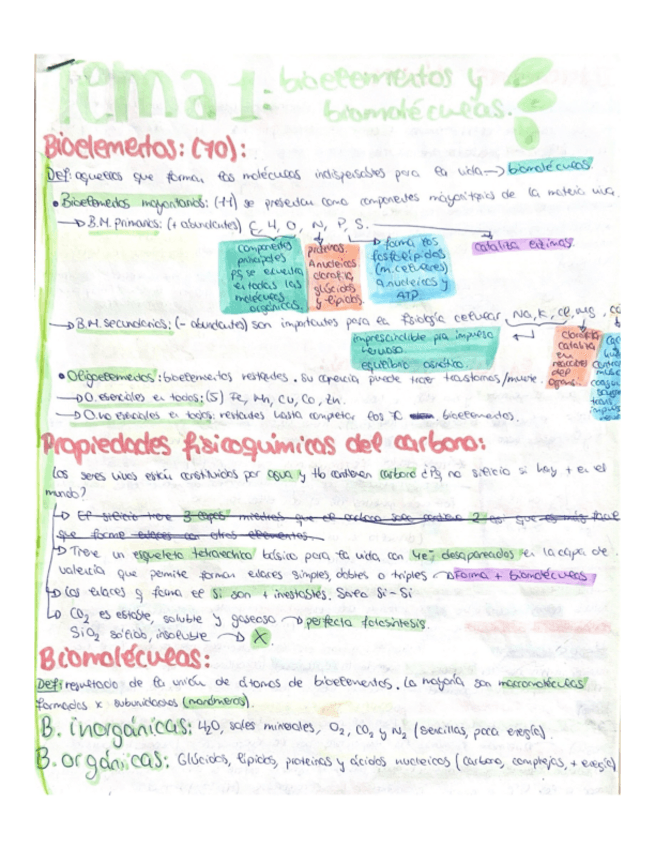 Tema 1: bioelementos y
biomoléculas.
Bioelementos: (70):
Def: aquellos que forman las moléculas indispensables para la vida → biomoléculas
• Bioelementos mayoritarios: (11) se presentan como componentes mayoritarios de la materia viva.
→ B.M. primarios: (+ abundantes) C, H, O, N, P, S.
componentes
principales
ps se encuentra
en todas las
moléculas
orgánicas.
proteínas
A.nucleicos
clorofila,
glúcidos
y lípidos.
forma los
fosfolípidos
(m. celulares)
A.nucleicos y
ATP
cataliza enzimas
→ B.M. secundarios: (- abundantes) son importantes para la fisiología celular, Na, K, Cl, Mg,
imprescindible pra impulso
nervioso
equilibrio osmótico.
clorofila
cataliza
en
reacciones
del
• Oligoelementos: bioelementos restantes. Su carencia puede traer trastornos/muerte.
→ O. esenciales en todos: (5) Fe, Mn, Cu, Co, Zn.
→ O. no esenciales en todos: restantes hasta completar los 70 bioelementos.
Propiedades fisicoquímicas del carbono:
Los seres vivos están constituidos por agua y tb contienen carbono ¿Pq no silicio si hay + en el
mundo?
→ El silicio tiene 3 capas mientras que el carbono solo contiene 2 así que es más fácil
que forme enlaces con otros elementos.
→ Tiene un esqueleto tetraédrico básico para la vida, con 4e⁻ desapareados en la capa de
valencia que permite formar enlaces simples, dobles o triples → Forma + biomoléculas
→ Los enlaces q forma el Si son + inestables. Salvo Si-Si
→ CO₂ es estable, soluble y gaseoso → perfecta fotosíntesis.
SiO₂ sólido, insoluble → X.
Biomoléculas:
Def: resultado de la unión de átomos de bioelementos. La mayoría son macromoléculas
formadas x subunidades (monómeros).
B. inorgánicas: H₂O, sales minerales, O₂, CO₂ y N₂ (sencillas, poca energía).
B. orgánicas: Glúcidos, lípidos, proteínas y ácidos nucleicos (carbono, complejas, + energía)